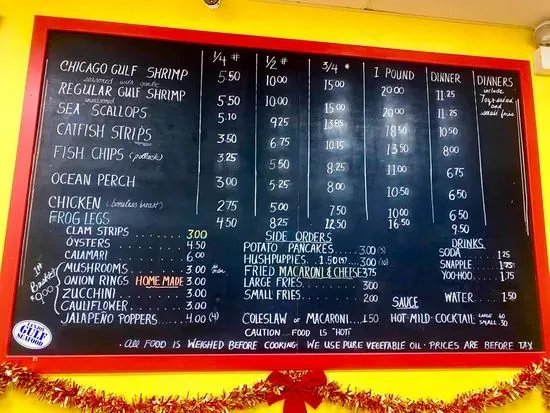 1/4 # 1/2 # 3/4 # 1 POUND DINNER DINNERS
CHICAGO GULF SHRIMP 5.50 10.00 15.00 20.00 11.25 include
seasoned with garlic
REGULAR GULF SHRIMP 5.50 10.00 15.00 20.00 11.25 and
unseasoned small fries
SEA SCALLOPS 5.10 9.25 13.85 18.50 10.75
CATFISH STRIPS 3.50 6.75 10.15 13.50 8.00
FISH CHIPS (pollock) 3.25 5.50 8.25 11.00 6.75
OCEAN PERCH 3.00 5.25 8.00 10.50 6.50
CHICKEN (boneless breast) 2.75 5.00 7.50 10.00 6.50
FROG LEGS 4.50 8.25 12.50 16.50 9.50
CLAM STRIPS 3.00
OYSTERS 4.50
CALAMARI 6.00
MUSHROOMS 3.00
ONION RINGS HOME MADE 3.00
ZUCCHINI 3.00
CAULIFLOWER 3.00
JALAPEÑO POPPERS 4.00 (4)
1 lb
9.00
SIDE ORDERS
POTATO PANCAKES 3.00 (3)
HUSHPUPPIES 1.50 (5) 3.00 (10)
FRIED MACARONI & CHEESE 3.75
LARGE FRIES 3.00
SMALL FRIES 2.00
COLESLAW OR MACARONI 1.50
CAUTION FOOD IS "HOT"
DRINKS
SODA 1.25
SNAPPLE 1.75
YOO-HOO 1.75
WATER 1.50
SAUCE
HOT·MILD·COCKTAIL LARGE .60
SMALL .30
GULF
SEAFOOD
ALL FOOD IS WEIGHED BEFORE COOKING. WE USE PURE VEGETABLE OIL · PRICES ARE BEFORE TAX